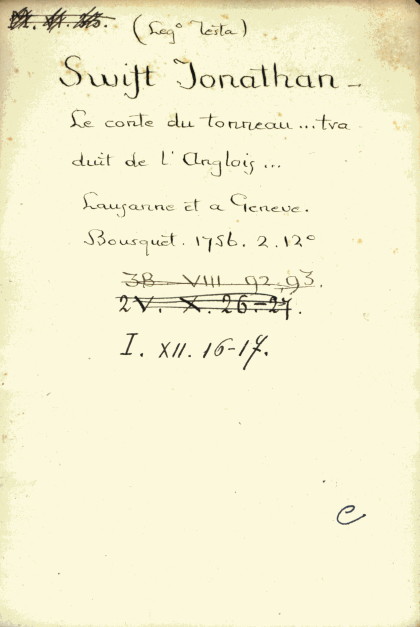 (Leg° Testa)
Swift Jonathan -
Le conte du tonneau ... tra
duit de l'Anglois ...
Lausanne et a Geneve.
Bousquet. 1756. 2. 12°
3B VIII 92, 93.
2V. X. 26-27.
I. XII. 16-17.
C